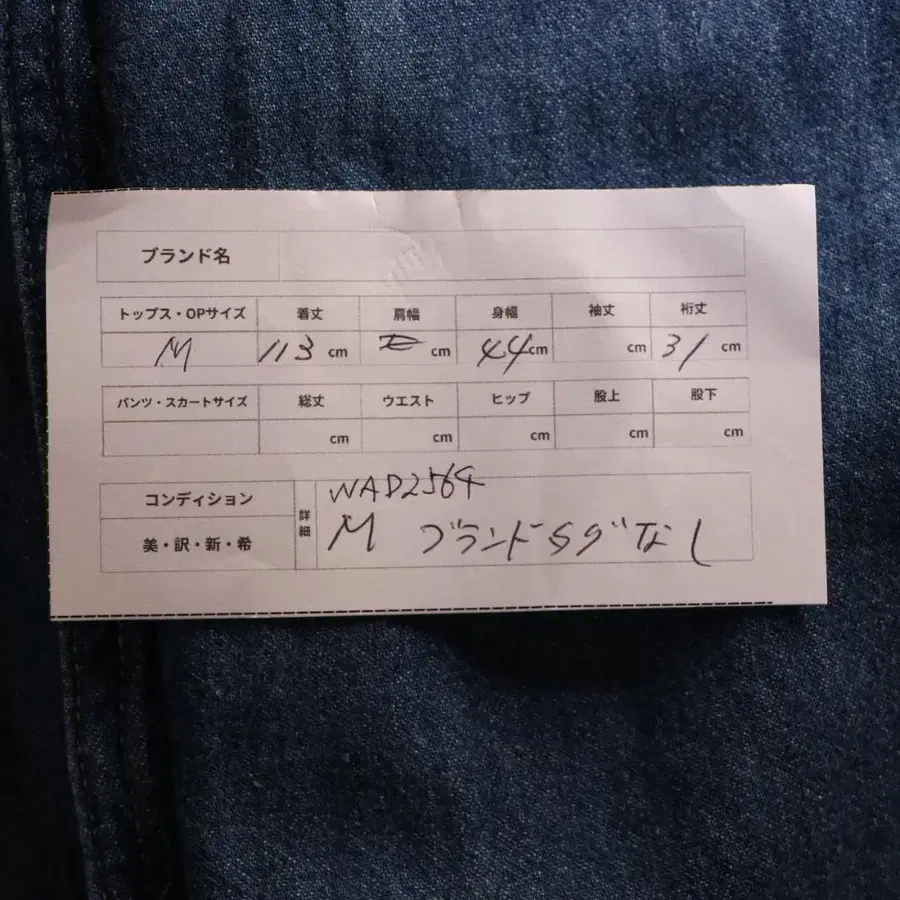 ブランド名
トップス・OPサイズ 着丈 肩幅 身幅 袖丈 裄丈
M 113 cm cm 44 cm cm 31 cm
パンツ・スカートサイズ 総丈 ウエスト ヒップ 股上 股下
cm cm cm cm cm
コンディション 詳細 WAD2564
美・訳・新・希 M ブランドタグなし